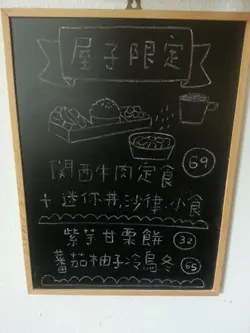 屋子限定
関西牛肉定食 69
+ 迷你丼,沙律,小食
紫芋甘栗餅 32
蕃茄柚子冷烏冬 65